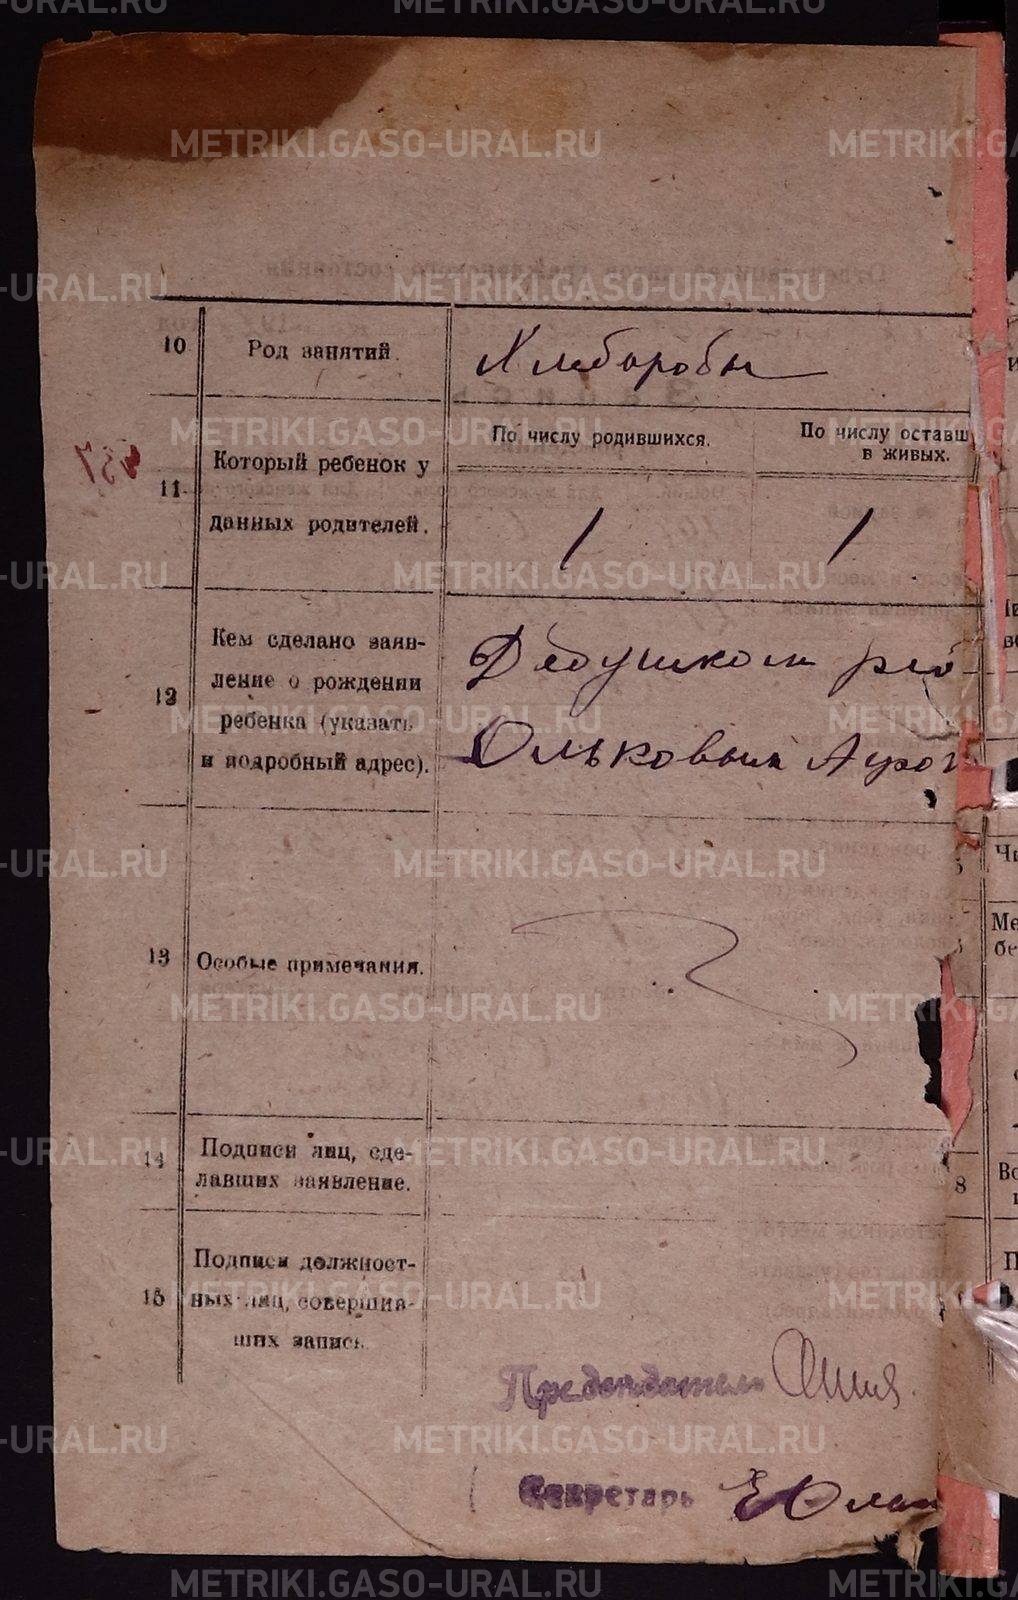 10 Род занятий. Хлеборобы
11 Который ребенок у данных родителей.
По числу родившихся. По числу оставш
в живых.
1 1
12 Кем сделано заяв-
ление о рождении
ребенка (указать
и подробный адрес).
Дедушкой
Ольковым
13 Особые примечания.
14 Подписи лиц, сде-
лавших заявление.
15 Подписи должност-
ных лиц, соверши-
ших запись.
Председатель
Секретарь
8
METRIKI.GASO-URAL.RU